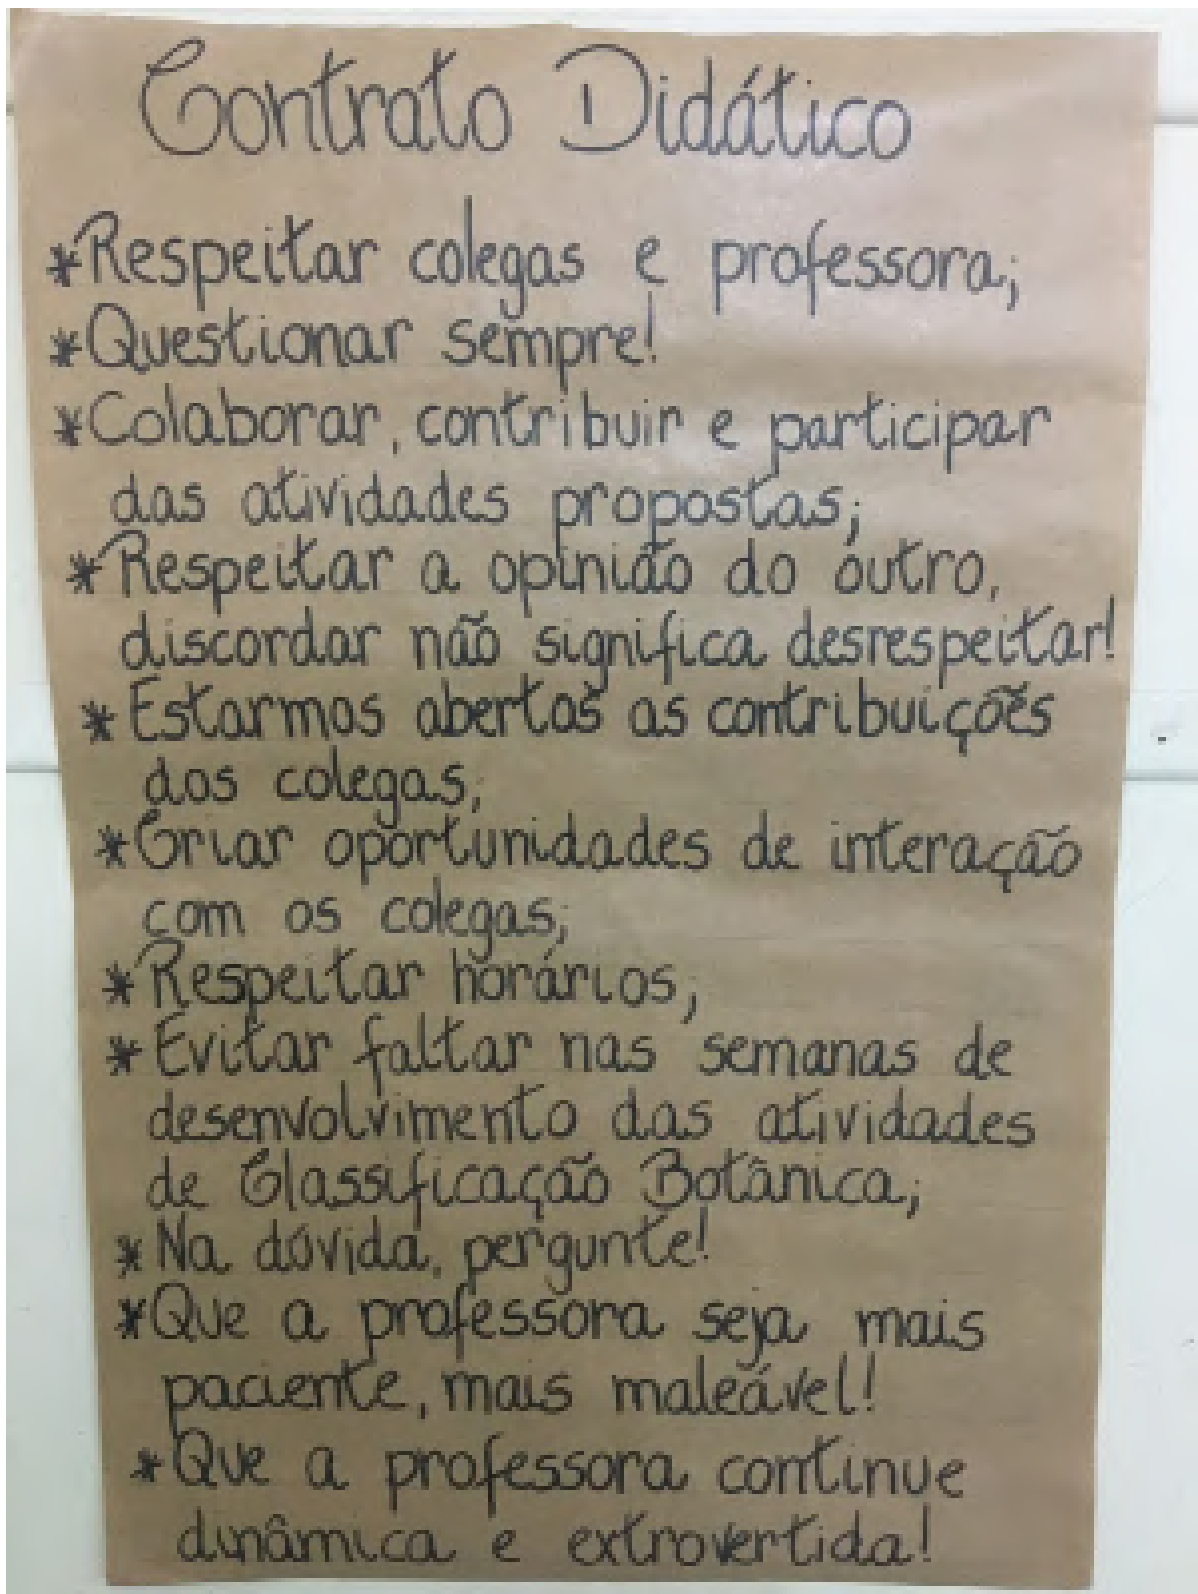 Contrato Didático
*Respeitar colegas e professora;
*Questionar sempre!
*Colaborar, contribuir e participar
das atividades propostas;
*Respeitar a opinião do outro,
discordar não significa desrespeitar!
*Estarmos abertos as contribuições
dos colegas;
*Criar oportunidades de interação
com os colegas;
*Respeitar horários;
*Evitar faltar nas semanas de
desenvolvimento das atividades
de Classificação Botânica;
*Na dúvida, pergunte!
*Que a professora seja mais
paciente, mais maleável!
*Que a professora continue
dinâmica e extrovertida!